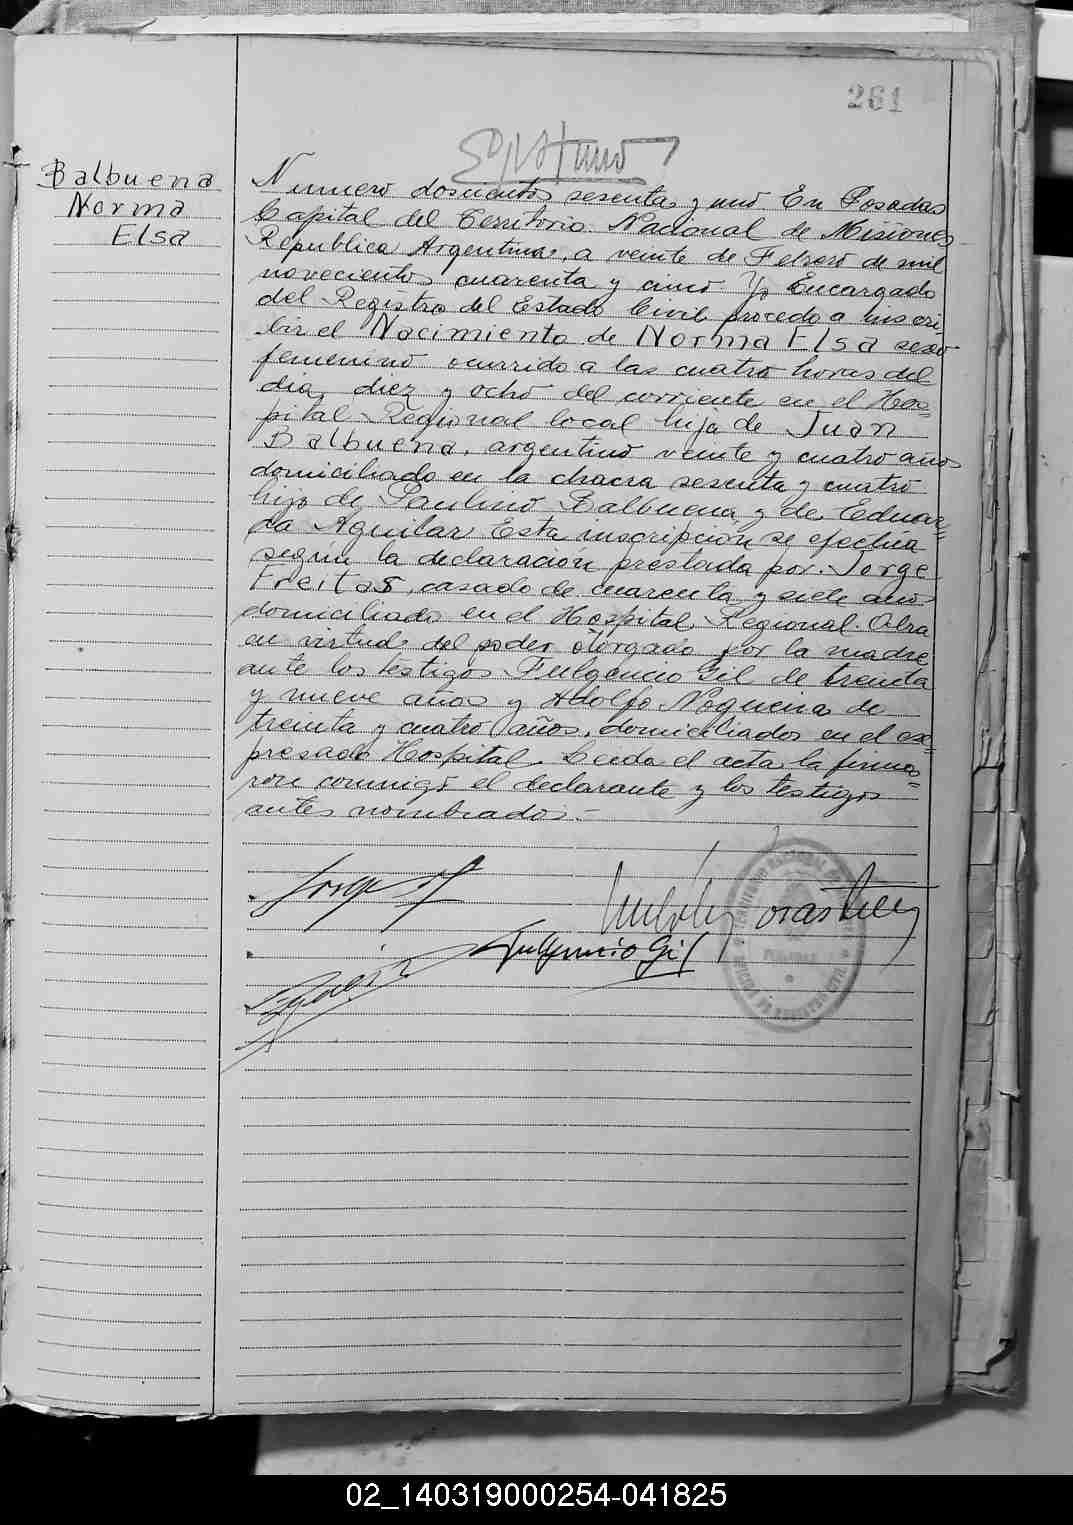 261
Balbuena
Norma
Elsa
Numero doscientos sesenta y uno En Posadas
Capital del Territorio Nacional de Misiones
Republica Argentina, a veinte de Febrero de mil
novecientos cuarenta y cinco Yo Encargado
del Registro del Estado Civil procedo a inscri
bir el Nacimiento de Norma Elsa sexo
femenino ocurrido a las cuatro horas del
dia diez y ocho del corriente en el Hos=
pital Regional local hija de Juan
Balbuena, argentino veinte y cuatro años
domiciliado en la chacra sesenta y cuatro
hijo de Paulino Balbuena y de Eduar=
da Aguilar Esta inscripción se efectúa
según la declaración prestada por Jorge
Freitas, casado de cuarenta y siete años
domiciliado en el Hospital Regional. Obra
en virtud del poder otorgado por la madre
ante los testigos Fulgencio Gil de treinta
y nueve años y Adolfo Nogueira de
treinta y cuatro años, domiciliados en el ex=
presado Hospital. Leida el acta la firma=
ron conmigo el declarante y los testigos
antes nombrados.-
Jorge
Fulgencio Gil
02_140319000254-041825